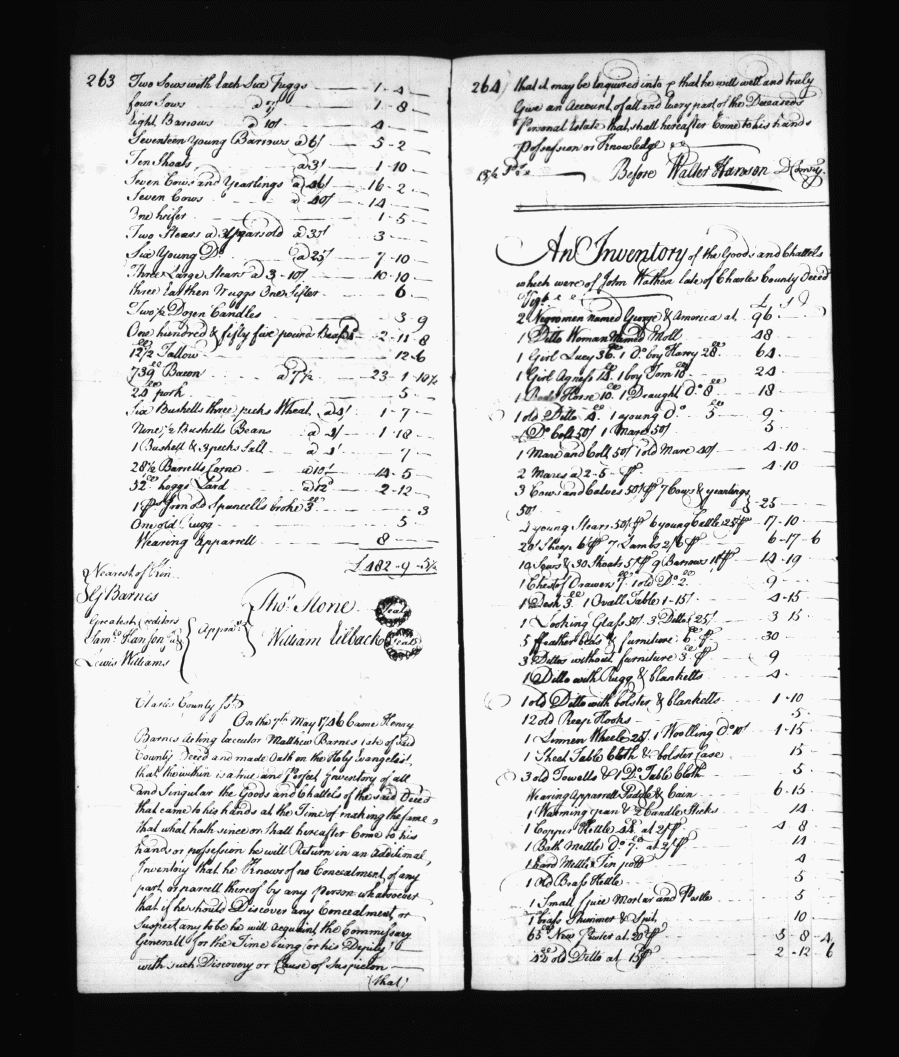 263
Two Sows with Each Six Piggs 1 - 4 -
four Sows a 7/ 1 - 8 -
Eight Barrows a 10/ 4 - -
Seventeen Young Barrows a 6/ 5 - 2 -
Ten Shoats a 3/ 1 - 10 -
Seven Cows and Yearlings a 46/ 16 - 2 -
Seven Cows a 40/ 14 - -
One heifer 1 - 5 -
Two Stears a 3 years old a 30/ 3 - -
Six Young Do a 25/ 7 - 10 -
Three Large Stears a 3 - 10/ 10 - 10 -
three Earthen Muggs One Sifter 6 -
Two 1/2 Dozen Candles 3 - 9
One hundred & fifty five pound 2 - 11 - 8
12 1/2 Tallow 12 - 6
739 Bacon a 7 1/2 23 - 1 - 10 1/2
24 pork 5 -
Six Bushells three pecks Wheat a 4/ 1 - 7 -
Nine 1/2 Bushells Beans a 4/ 1 - 18 -
1 Bushell & 3 pecks Salt a 4/ 7 -
28 1/2 Barrells Corne a 10/ 14 - 5 -
52 hoggs Lard a 12 2 - 12 -
1 pr Iron old Spancells broke 3 3
One old Rugg 5 -
Wearing Apparrell 8 - -
£ 482 - 9 - 5 1/4
Nearest of Kin
Gj Barnes
Greatest Creditors
Saml Hanson
Lewis Williams
Apprars
Thos Stone Seal
William Eilbeck Seal
Charles County Ss
On the 7th May 1746 Came Henry
Barnes acting Executor Matthew Barnes late of said
County Deced and made Oath on the Holy Evangelist.
that the within is a true and Perfect Inventory of all
and Singular the Goods and Chattels of the said Deced
that came to his hands at the Time of making the same,
that what hath since or shall hereafter Come to his
hands or possession he will Return in an Additional
Inventory that he Knows of no Concealment of any
part or parcell thereof by any Person whatsoever
that if he should Discover any Concealment, or
Suspect any to be he will acquaint the Commissary
Generall for the Time being or his Deputy
with such Discovery or Cause of Suspicion
(that)
264
that it may be Enquired into & that he will well and truly
Give an Account of all and every part of the Deceaseds
Personal Estate that shall hereafter Come to his hands
Possession or Knowledge
Before Walter Hanson D Comry.
An Inventory of the Goods and Chattels
which were of John Wathen late of Charles County Deced
Vizt £ S D
2 Negromen named George & America at 96 - -
1 Ditto Woman Named Moll 48
1 Girl Lucy 36. 1 Do boy Harry 28. 64 -
1 Girl Agness 14. 1 boy Tom 10 24
1 Rode Horse 10. 1 Draught Do 8 18
1 old Ditto 4. 1 young Do 5 9 -
1 Do Colt 50/ 1 Mare 50/ 5 -
1 Mare and Colt 50/ 1 old Mare 40/ 4 - 10
2 Mares a 2 - 5 - pr 4 - 10
3 Cows and Calves 50/ pr 7 Cows & yearlings
50/ 25 -
4 young Stears 50/ pr 6 young Cattle 25/ pr 17 - 10 -
20 Sheep 6/ pr 7 Lambs 2/6 pr 6 - 17 - 6
10 Sows & 30 Shoats 5/ pr 9 Barrows 11/ pr 14 - 19
1 Chest of Drawers 7. 1 old Do 2. 9 -
1 Desk 3. 1 Ovall Table 1 - 15/ 4 - 15
1 Looking Glass 50/ 3 Ditto 25/ 3 15
5 ffeather beds & furniture 6 pr 30
3 Dittos without furniture 3 pr 9
1 Ditto with Rugg & blanketts 4 -
1 old Ditto with bolster & blanketts 1 - 10
12 old Reep Hooks 5 -
1 Linnen Wheele 25/ 1 Woolling Do 10/ 1 - 15
1 Sheat Table Cloth & bolster Case 15
3 old Towells & 1 Do Table Cloth 5
Wearing Apparrell Saddle & Cain 6 - 15
1 Warming pan & 2 Candle Sticks 14
1 Copper Kettle 44 at 2/ pr 4 - 8
1 Bell Mettle Do 7 at 2/ pr 14
1 hard Mettle & Tin pott 4
1 Old Brass Kettle 5
1 Small Spice Mortar and Pestle 5
1 brass Skimmer & Spit 10
65 New Pewter at 20 pr 5 - 8 - 4
42 old Ditto at 15 pr 2 - 12 - 6